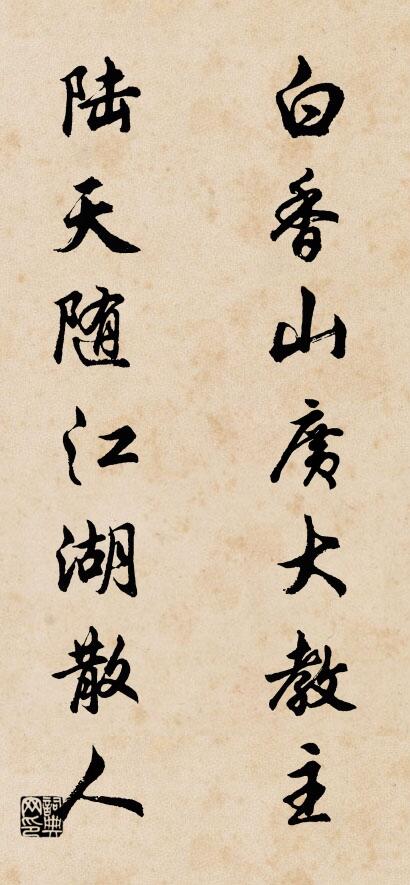 白香山廣大教主
陆天随江湖散人
詞典网印